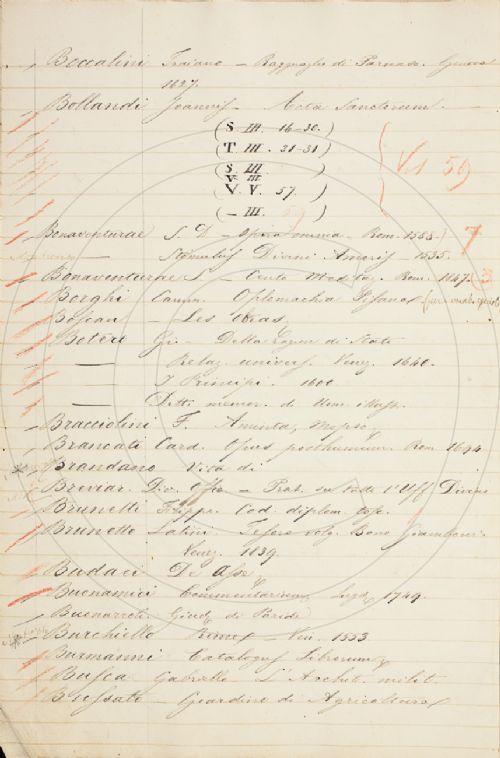 Boccalini Traiano – Ragguaglio di Parnaso. Genova
1627.
Bollandi Joannis – Acta Sanctorum.
(S. III. 16-30.)
(T. III. 21-31)
(S. III.
V. III
V. V. 57.)
(– III. 59)
V.i 59
Bonaventurae S. – Opera omnia – Rom. 1588. 7
— Stimulus Divini Amoris – 1535.
Bonaventurae S – Cento Meditaz. Rom. 1647. 3
Borghi Oplomachia Pisana
Boscan – Las Obras,
Botero Gio – Della Ragion di Stato
— Relaz. univers. Venez. 1640.
— I Principi. 1600.
— Detti memor. di
Bracciolini F. Aminta,
Brancati Card. Opus posthumum. Rom. 1694.
Brandano Vita di
Breviar. Div. Offic – Trat. su tutto l'Uff. Divino
Brunetti Filippi. Cod. diplom. tosc.
Brunetto Latini. Tesoro volg. Bono Giamboni.
Venez. 1839.
Budaei De Asse,
Buonamici Commentariorum Lugd. 1749.
Buonarroti Giud. di Paride
Burchiello Rime – Ven. 1553
Burmanni Catalogus Librorum
Busca Gabriello – L'Archit. milit.
Bussato – Giardino di Agricoltura